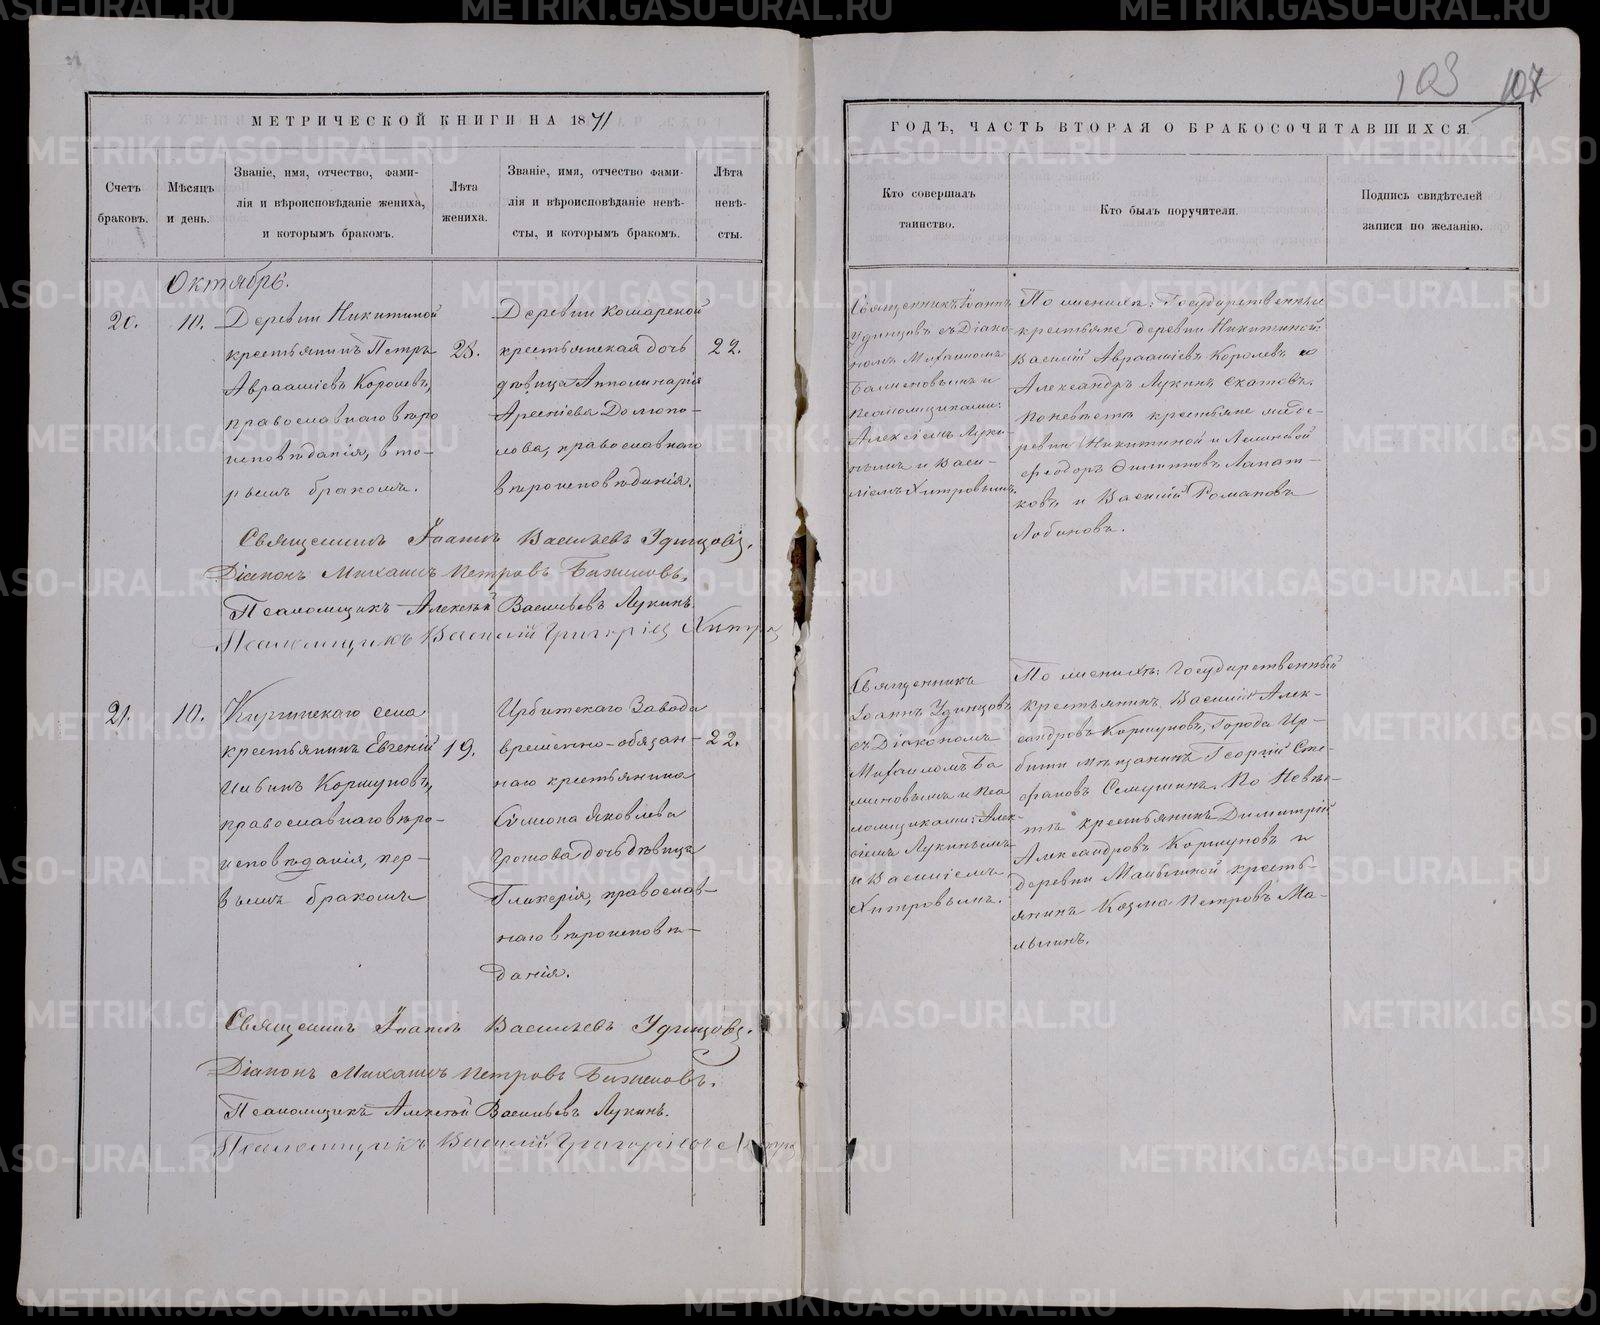 МЕТРИЧЕСКОЙ КНИГИ НА 1871
Счетъ браковъ.
Мѣсяцъ и день.
Званіе, имя, отчество, фами-
лія и вѣроисповѣданіе жениха,
и которымъ бракомъ.
Лѣта жениха.
Званіе, имя, отчество фами-
лія и вѣроисповѣданіе невѣ-
сты, и которымъ бракомъ.
Лѣта невѣ-
сты.
Октябрь.
20.
10.
Деревни Никитиной
крестьянинъ Петръ
Авраамiевъ Королевъ,
православнаго вѣро
исповѣданія, вто-
рымъ бракомъ.
28.
Деревни Комарской
крестьянская дочь
дѣвица Апполинарія
Арсеніева Долгопо-
лова, православнаго
вѣроисповѣданія.
22.
Священникъ Іоаннъ Васильевъ Удинцовъ.
Діаконъ Михаилъ Петровъ Баженовъ.
Псаломщикъ Алексѣй Васильевъ Лукинъ
Псаломщикъ Василій Григоріев
21.
10.
Киргинскаго села
крестьянинъ Евгеній
Ивинъ Коршуновъ,
православнаго вѣро-
исповѣданія, пер-
вымъ бракомъ
19.
Ирбитскаго Завода
временно-обязан-
наго крестьянина
Симеона Яковлева
дочь дѣвица
Гликерія, православ-
наго вѣроисповѣ-
данія.
22.
Священникъ Іоаннъ Васильевъ Удинцовъ.
Діаконъ Михаилъ Петровъ Баженовъ.
Псаломщикъ Алексѣй Васильевъ Лукинъ.
Псаломщикъ Василій Григоріевъ
103 107
ГОДЪ, ЧАСТЬ ВТОРАЯ О БРАКОСОЧИТАВШИХСЯ.
Кто совершалъ
таинство.
Кто былъ поручители.
Подпись свидѣтелей
записи по желанію.
Священникъ Іоаннъ
Удинцовъ съ Діако-
номъ Михаиломъ
Баженовымъ и
псаломщиками:
Алексіемъ Луки
нымъ и Васи-
ліемъ Хитровымъ.
По женихѣ: Государственные
крестьяне деревни Никитиной:
Василій Авраамiевъ Королевъ и
Александръ Лукинъ Скатовъ.
По невѣстѣ крестьяне де-
ревни Никитиной и
Ѳеодоръ Филиповъ Лапат-
ковъ и Василій Романовъ
Лобановъ.
Священникъ
Іоаннъ Удинцовъ
съ Діакономъ
Михаиломъ Ба
женовымъ и пса
ломщиками: Алек-
сіемъ Лукинымъ
и Василіемъ
Хитровымъ.
По женихѣ: Государственный
крестьянинъ Василій Алек-
сандровъ Коршуновъ, города Ир-
бити мѣщанинъ Георгій Сте-
фановъ Семушинъ. По невѣс-
тѣ крестьянинъ Димитрій
Александровъ Коршуновъ и
деревни Малыгиной кресть-
янинъ Козма Петровъ Ма-
лыгинъ.
METRIKI.GASO-URAL.RU